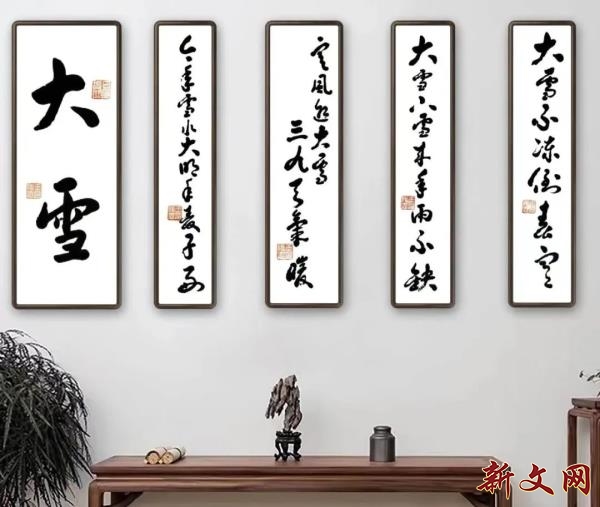 大雪
今年雪水大明年麦子多
寒風迎大雪
三九天氣暖
大雪下雪来年雨不缺
大雪不凍倒春寒
新文网